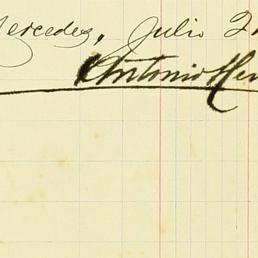 Mercedes, Julio 2
Antonio Her